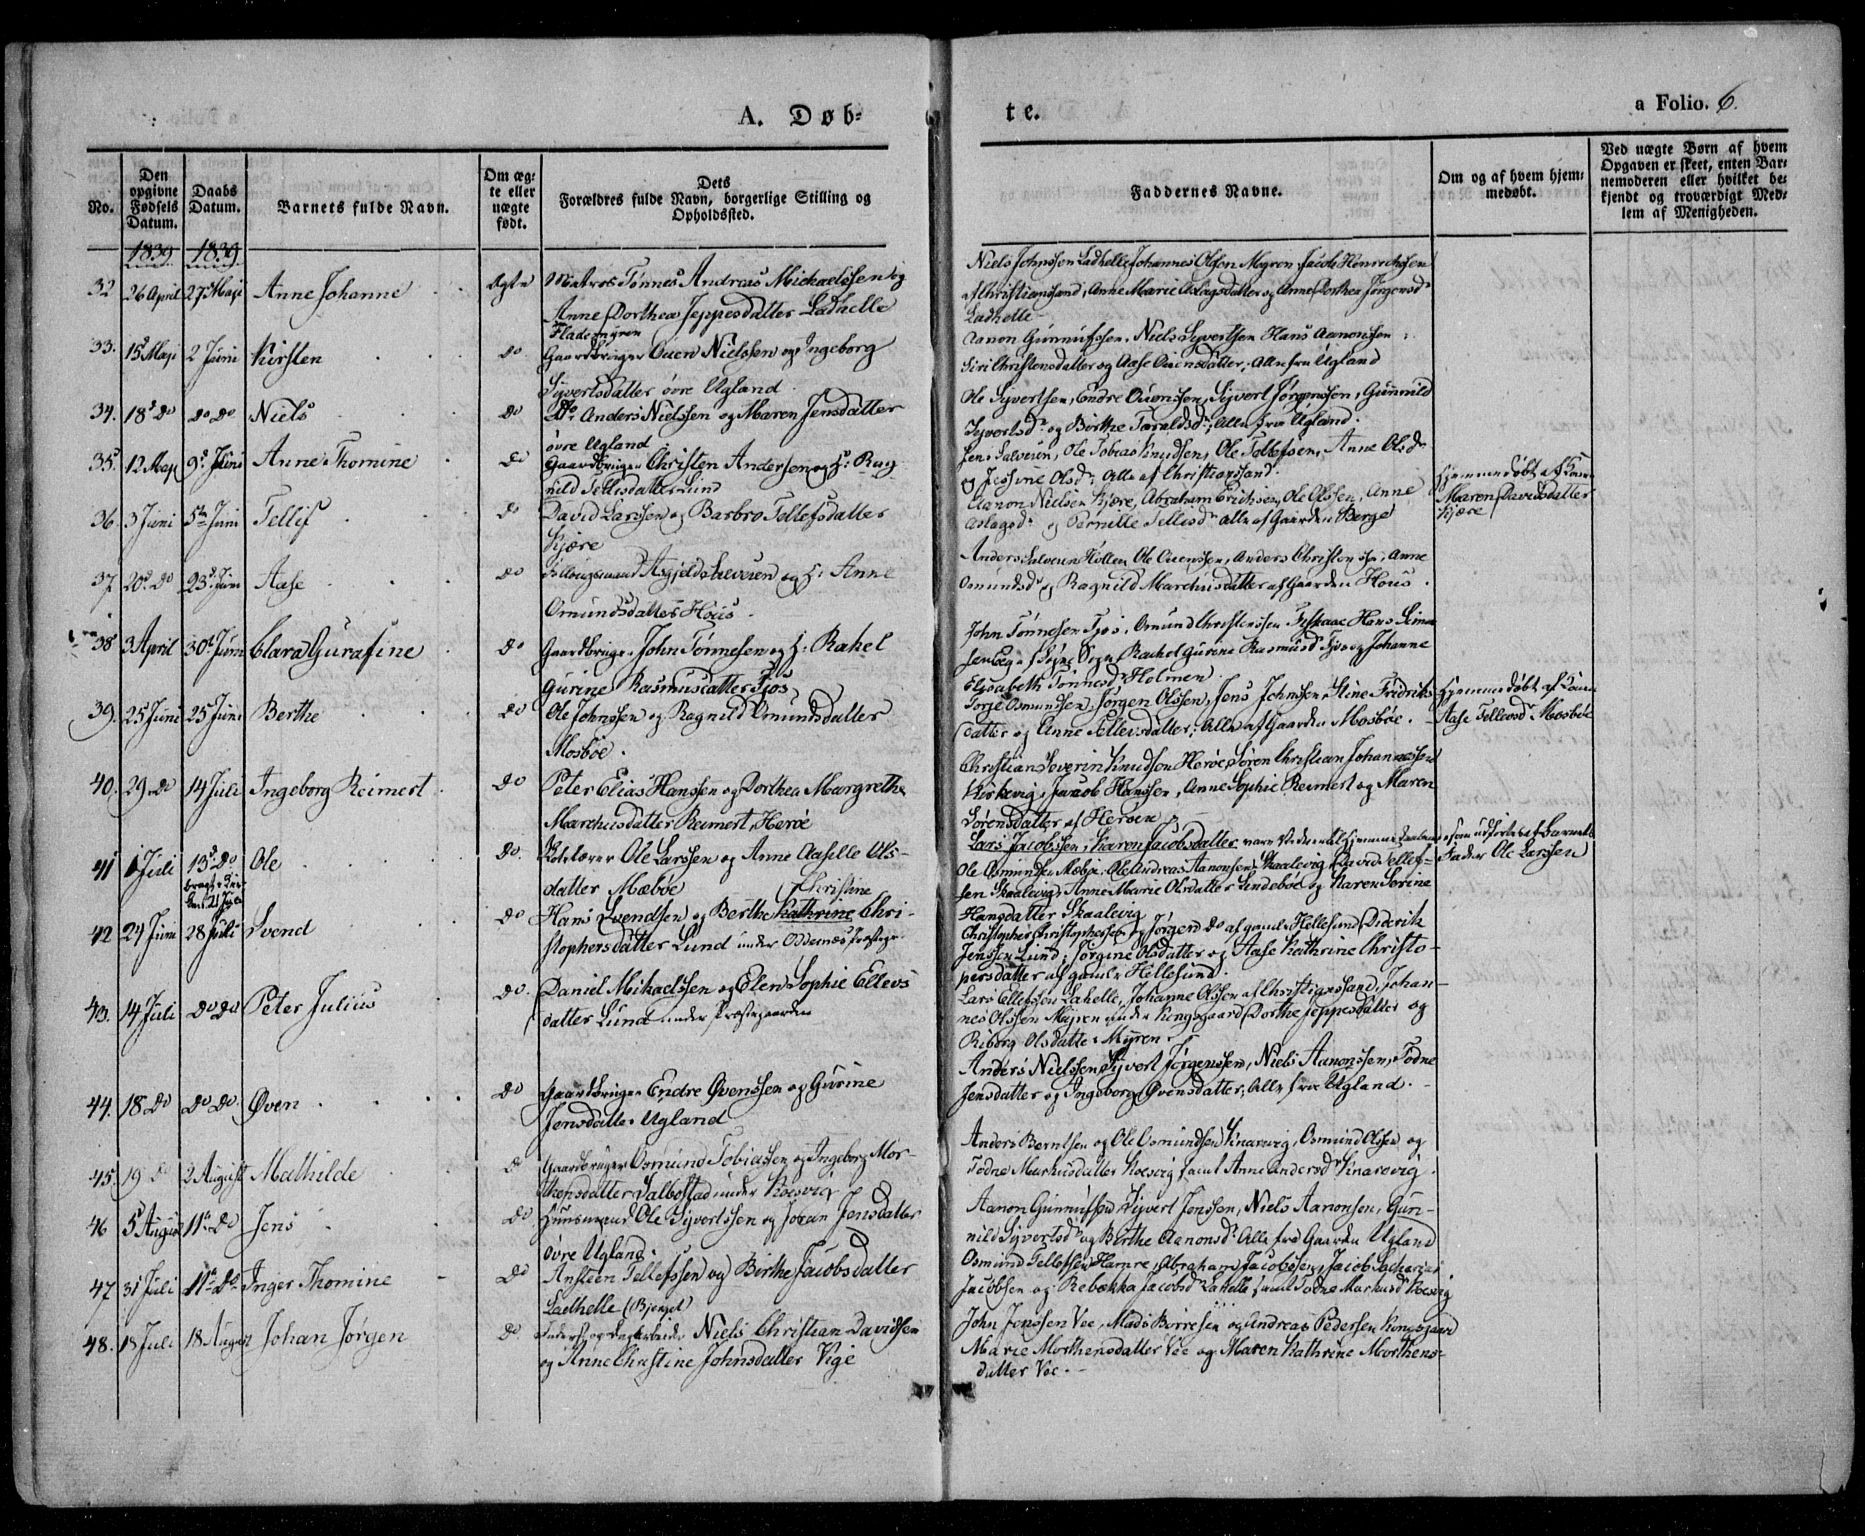 A. Døb-
te.
a Folio. 6.
No.
Den opgivne Fødsels Datum.
Daabs Datum.
Barnets fulde Navn.
Om ægte eller uægte født.
Dets
Forældres fulde Navn, borgerlige Stilling og
Opholdssted.
Faddernes Navne.
Om og af hvem hjemmedøbt.
Ved uægte Børn af hvem
Opgaven er skeet, enten Bar-
nemoderen eller hvilket be-
kjendt og troværdigt Med-
lem af Menigheden.
1839 1839
32 26 April 27 Maji Anne Johanne Ægte Matros Tønnes Andreas Michaelssen og
Anne Dorthea Jeppesdatter Ladhelle
Fladsmyren
Niels Johnssen Ladhelle Johannes Olsson Myren, Jacob Henrechssen
af Christiansand, Anne Marie Aslagsdatter og Anne Dorthea Jørgensd
Ladhelle
33. 15 Maji 2 Juni Kirsten do Gaardbruger Ouen Nielssen og Ingeborg
Syvertsdatter øvre Ugland
Aanon Gunnufssen, Niels Syvertsen Hans Aanonssen
Siri Christensdatter og Aase Ouensdatter, Alle fra Ugland
34. 18 do do do Niels do do Anders Nielssen og Maren Jensdatter
øvre Ugland
Ole Syvertsen, Endre Ouenssen, Syvert Jørgenssen, Gunnild
Syvertsdr og Birthe Taraldsdr, Alle fra Ugland
35 12 Maji 9 Juni Anne Thomine do Gaardbruger Christen Andersen og H: Rag
nild Tellisdatter Lund
Jens Salvesen, Ole Tobias Knudsen, Ole Tellefsen, Anne Olsdr
og Jessine Olsdr Alle af Christianssand
36 3 Juni 5te Juni Tellif do David Larssen og Barbro Tellefsdatter
Kjære
Aanon Nielsen Kjære, Abraham Erichsen, Ole Olssen, Anne
Aslagsdr og Pernille Tellisdr Alle af Gaarden Berge
Hjemmedøbt af Konen
Maren Davidsdatter
Kjære
37 20 do 23 Juni Aase do Asgjeld Salvesen og H: Anne
Omundsdatter Hous
Anders Salvesen Hollen Ole Ouenssen, Anders Christenssen, Anne
Omundsdr og Ragnild Marchusdatter af Gaarden Hous
38 3 April 30 Juni Clara Gurafine do Gaardbruger John Tønnesen og H: Rahel
Gurine Rasmusdatter Fjos
John Tønnesen Fjos, Omund Christenssen Fiskaae Hans Simon
Rachel Gurine Rasmusd Fjos og Johanne
Elisabeth Tønnesdr Holmen
39. 25 Juni 25 Juni Berthe do Ole Johnssen og Ragnild Omundsdatter
Mosbøe
Torje Osmundsen, Jørgen Olssen, Jens Johnssen, Stine Fridrichs
datter og Anne Tellevsdatter, Alle af Gaarden Mosbøe
Hjemmedøbt af Konen
Aase Tellevsdr Mosbøe
40. 29 do 14 Juli Ingeborg Reimert do Peter Elias Hanssen og Dorthea Margrethe
Marchusdatter Reimert, Herøe
Christian Severin Knudsen Herøe, Søren Christian Johannessen
Kirkevig, Jacob Hanssen, Anne Sophie Reimert og Maren
Sørensdatter af Herøen
41 1 Juli 13 do Ole do Ole Larssen og Anne Aaselle Ols-
datter Mæbøe
Lars Jacobssen, Karen Jacobsdatter vare Vidner til Hjemmedaaben
som udførtes af Barnets
Fader Ole Larssen
Ole Osmundsen Mæbøe, Ole Andreas Aanonsen Skaalevig, David Tellef-
sen Skaalevig, Anne Marie Olsdatter Sendebøe og Karen Serine
Hansdatter Skaalevig
42 24 Juni 28 Juli Svend do Hans Svendsen og Berthe Kathrine Chri-
Christine
stophersdatter Lund under Oddernes Præstegr
Christopher Christophersen og Jørgen do af gamle Hellesund, Diderik
Jenssen Lund, Jørgine Olsdatter og Aase Kathrine Christo-
persdatter af gamle Hellesund
43. 14 Juli do do Peter Julius do Daniel Mikaelssen og Elen Sophie Ellevs
datter Lund under Præstegaarden
Lars Ellefsen Lahelle, Johanne Olssen af Christianssand, Johan-
nes Olssen Myren under Kongsgaard Dorthe Jeppesdatter og
Riborg Olsdatter Myren
44. 18 do do do Øven do Gaardbruger Endre Øvenssen og Gurine
Jonsdatter Ugland
Anders Nielssen, Syvert Jørgenssen, Niels Aanonssen, Todne
Jensdatter og Ingeborg Øvensdatter, Alle fra Ugland
45. 19 do 2 August Mathilde do Gaardbruger Osmund Tobiassen og Ingeborg Mor-
thensdatter Salbostad under Koesvig
Anders Berntsen og Ole Osmundsen Knarevig, Osmund Olssen og
Todne Markusdatter Koesvig samt Anne Andersdr Knarevig
46 5 August 11 do Jens do Huusmand Ole Syvertssen og Joran Jensdatter
øvre Ugland
Aanon Gunnufsen Syvert Jonssen, Niels Aanonsen, Gun-
nild Syvertsdr og Birthe Aanonsdr Alle fra Gaarden Ugland
47 31 Juli 11 do Inger Thomine do Ansteen Tellefssen og Birthe Jacobsdatter
Ladhelle (Bjenget)
Osmund Tellefsen Hamre, Abraham Jacobssen, Jacob Zacharias
Jacobsen og Rebækka Jacobsd Lahelle samt Todne Markusd Koesvig
48. 18 Juli 18 August Johan Jørgen do Niels Christian Davidsen
og Anne Christine Johnsdatter Vige
John Jenssen Vee, Mads Børresen og Andreas Pedersen Kongsgaard
Marie Morthensdatter Vee og Maren Kathrine Morthens-
datter Vee